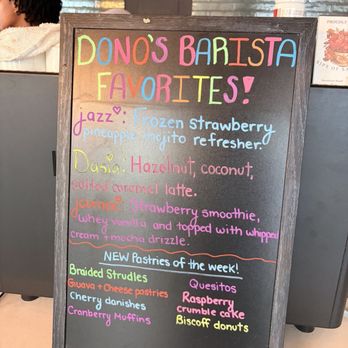 DONO'S BARISTA
FAVORITES!
jazz: Frozen strawberry
pineapple mojito refresher.
Hazelnut, coconut,
salted caramel latte.
Strawberry smoothie,
whey vanilla and topped with whipped
cream + mocha drizzle.
NEW Pastries of the week!
Braided Strudles
Guava + Cheese pastries
Cherry danishes
Cranberry Muffins
Quesitos
Raspberry
crumble cake
Biscoff donuts